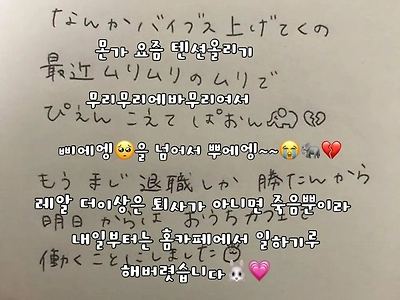 なんかバイブス上げてくの
몬가 요즘 텐션올리기
最近ムリムリのムリで
무리무리에바무리여서
ぴえんこえてぱおん
삐에엥🥺을 넘어서 뿌에엥~~😭🐘💔
もうまじ退職しか勝たんから
레알 더이상은 퇴사가 아니면 죽음뿐이라
明日からはおうちカフェで
내일부터는 홈카페에서 일하기루
働くことにしました
해버렸습니다🐰💗